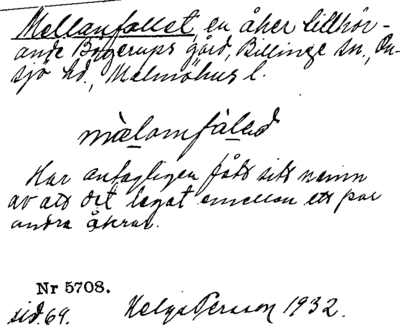 Mellanfallet, en åker tillhör-
ande Bogerups gård, Billinge sn., On-
sjö hd., Malmöhus l.
mælamfàled
Har antagligen fått sitt namn
av att det legat emellan ett par
andra åkrar.
Nr 5708.
sid. 69. Helge Persson 1932.